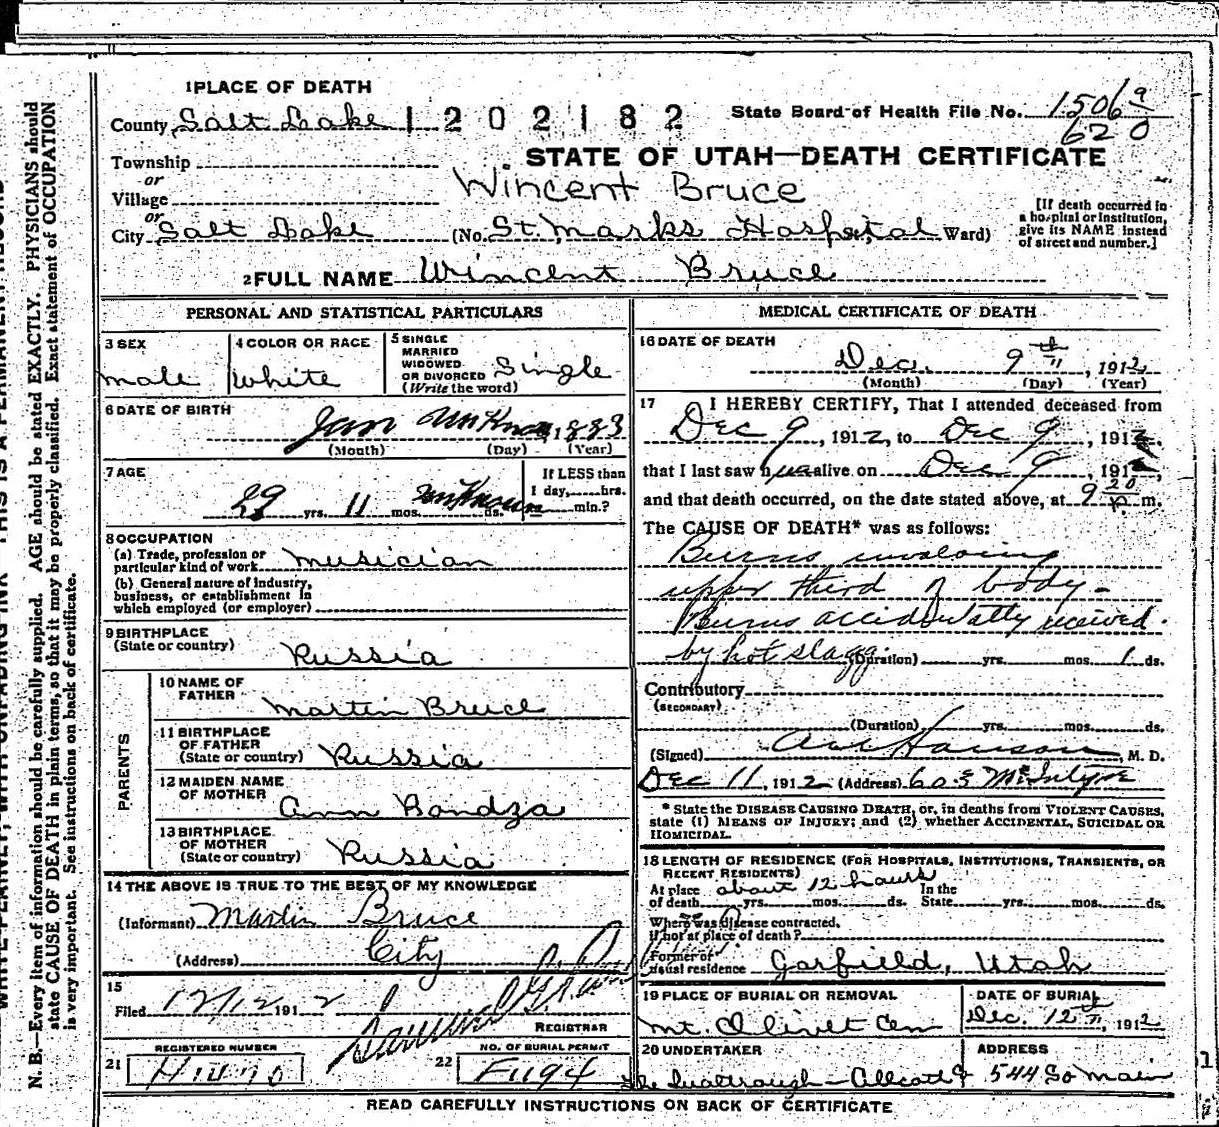 1 PLACE OF DEATH
County Salt Lake 1202182 State Board of Health File No. 1506 9
620
Township
or
STATE OF UTAH—DEATH CERTIFICATE
Village
Wincent Bruce
or
City Salt Lake (No. St. Marks Hospital St., Ward)
[If death occurred in
a hospital or institution,
give its NAME instead
of street and number.]
2 FULL NAME Wincent Bruce
PERSONAL AND STATISTICAL PARTICULARS
3 SEX
male
4 COLOR OR RACE
White
5 SINGLE
MARRIED
WIDOWED
OR DIVORCED
(Write the word)
Single
6 DATE OF BIRTH
Jan unknown 1883
(Month) (Day) (Year)
7 AGE
29 yrs. 11 mos. unknown ds.
If LESS than
1 day, hrs.
min.?
8 OCCUPATION
(a) Trade, profession or
particular kind of work musician
(b) General nature of industry,
business, or establishment in
which employed (or employer)
9 BIRTHPLACE
(State or country) Russia
PARENTS
10 NAME OF
FATHER
Martin Bruce
11 BIRTHPLACE
OF FATHER
(State or country) Russia
12 MAIDEN NAME
OF MOTHER
Ann Bondza
13 BIRTHPLACE
OF MOTHER
(State or country) Russia
14 THE ABOVE IS TRUE TO THE BEST OF MY KNOWLEDGE
(Informant) Martin Bruce
(Address) City
15
Filed 12/12 1912
REGISTRAR
REGISTERED NUMBER
21
NO. OF BURIAL PERMIT
22
MEDICAL CERTIFICATE OF DEATH
16 DATE OF DEATH
Dec. 9th, 1912
(Month) (Day) (Year)
17 I HEREBY CERTIFY, That I attended deceased from
Dec 9, 1912, to Dec 9, 1912.
that I last saw h alive on Dec 9, 191
and that death occurred, on the date stated above, at 9 20 P. m.
The CAUSE OF DEATH* was as follows:
Burns involving
upper third of body -
Burns accidentally received
by hot slagg (Duration) yrs. mos. 1 ds.
Contributory
(SECONDARY)
(Duration) yrs. mos. ds.
(Signed) Hanson, M. D.
Dec 11, 1912 (Address) 603 McIntyre
* State the DISEASE CAUSING DEATH, or, in deaths from VIOLENT CAUSES,
state (1) MEANS OF INJURY; and (2) whether ACCIDENTAL, SUICIDAL OR
HOMICIDAL.
18 LENGTH OF RESIDENCE (FOR HOSPITALS, INSTITUTIONS, TRANSIENTS, OR
RECENT RESIDENTS)
At place about 12 hours In the
of death yrs. mos. ds. State yrs. mos. ds.
Where was disease contracted,
if not at place of death?
Former or
usual residence Garfield, Utah
19 PLACE OF BURIAL OR REMOVAL
Mt. Olivet Cem
DATE OF BURIAL
Dec. 12th, 1912
20 UNDERTAKER
ADDRESS
544 So Main
READ CAREFULLY INSTRUCTIONS ON BACK OF CERTIFICATE
N. B.—Every item of information should be carefully supplied. AGE should be stated EXACTLY. PHYSICIANS should
state CAUSE OF DEATH in plain terms, so that it may be properly classified. Exact statement of OCCUPATION
is very important. See instructions on back of certificate.